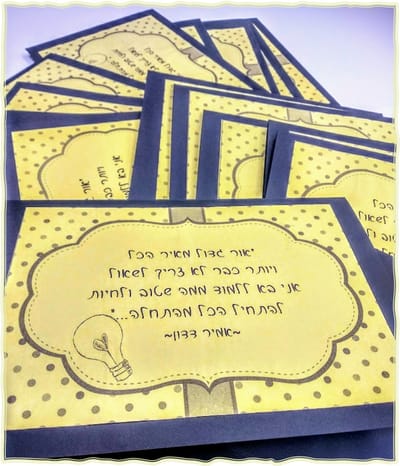 "אור גדול מאיר הכל
ויותר כבר לא צריך לשאול
אני בא ללמוד ממה שטוב ולחיות
להתחיל הכל מהתחלה..."
~אמיר דדון~